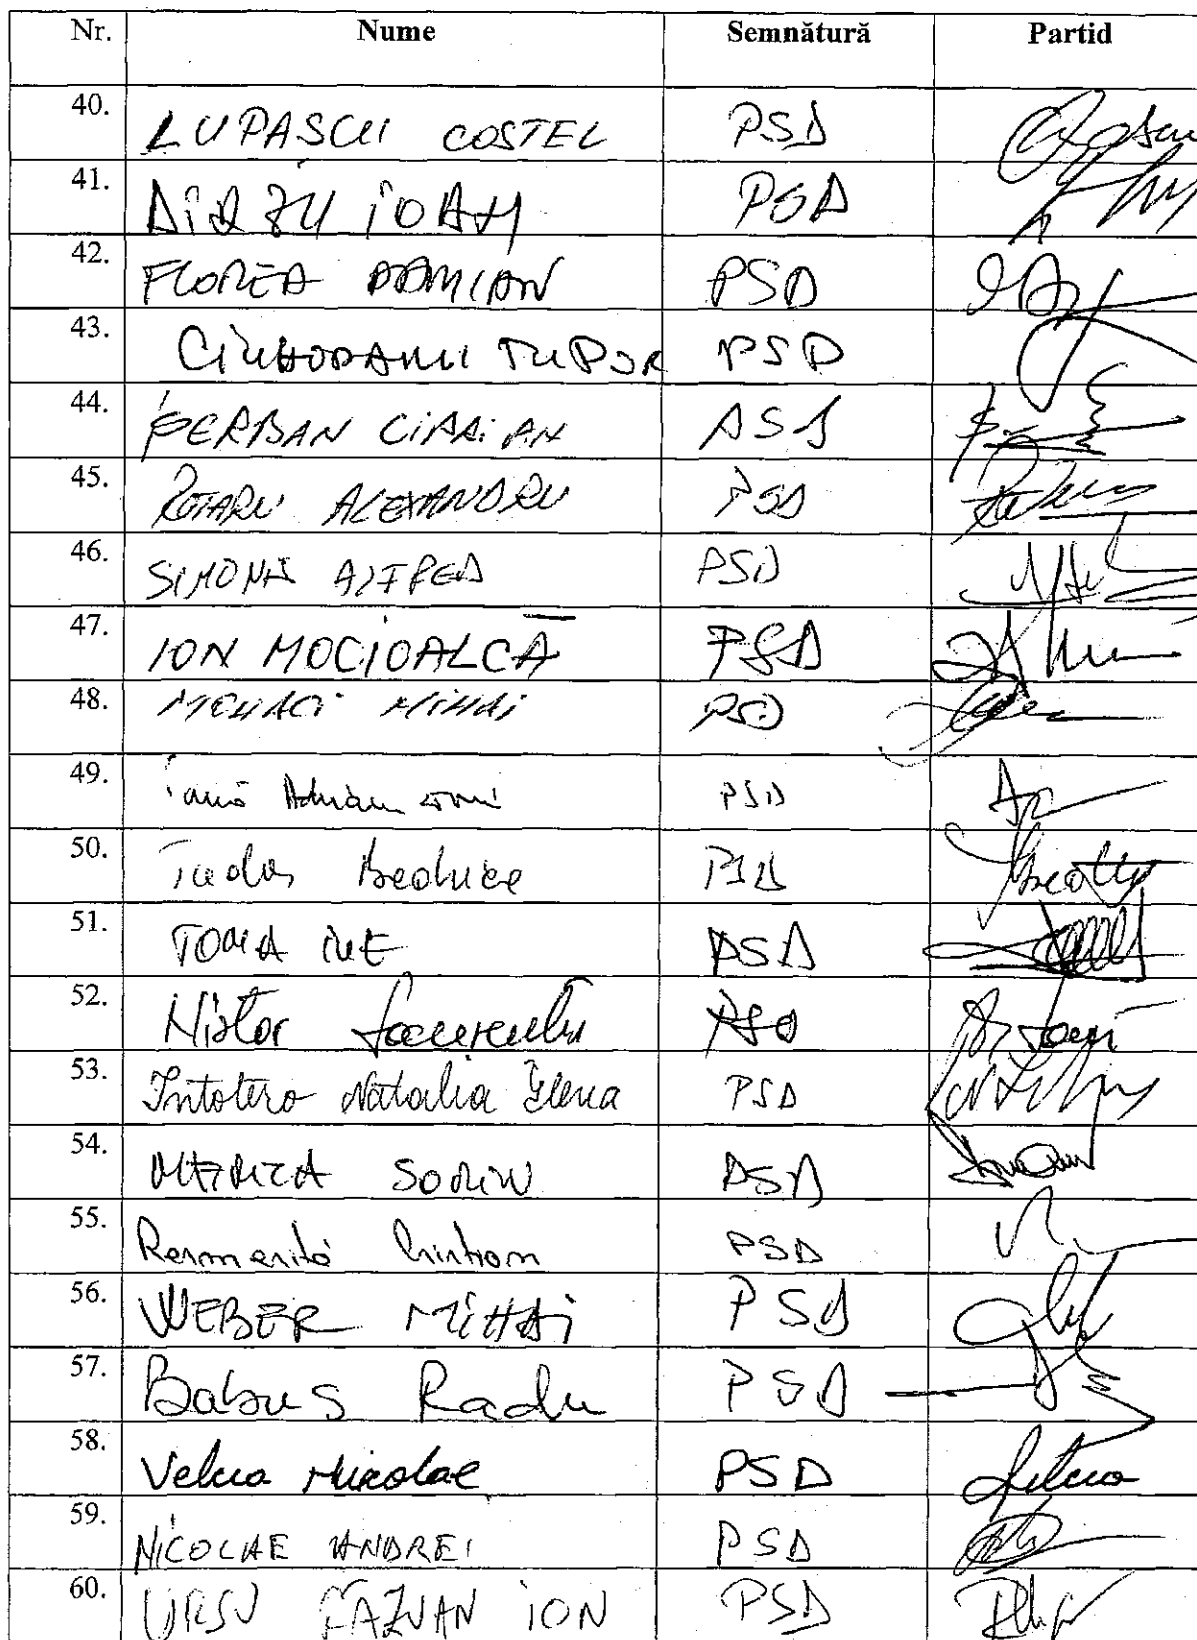 Nr. Nume Semnătură Partid
40. LUPASCU COSTEL PSD
41. DIRZU IOAN PSD
42. FLOREA DAMIAN PSD
43. CIUHODARU TUDOR PSD
44. ȘERBAN CIPRIAN PSD
45. ROTARU ALEXANDRU PSD
46. SIMONIS ALFRED PSD
47. ION MOCIOALCĂ PSD
48. MOHACI MIHAI PSD
49. PSD
50. Tudor Beatrice PSD
51. TOMA ILIE PSD
52. Nistor Laurentiu PSD
53. Intotero Natalia Elena PSD
54. MARICA SORIN PSD
55. Resmeriță PSD
56. WEBER MIHAI PSD
57. Babus Radu PSD
58. Velcea Nicolae PSD
59. NICOLAE ANDREI PSD
60. URSU RAZVAN ION PSD